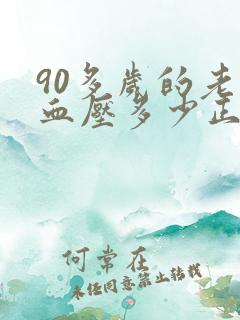 90多岁的老
血压多少正
何常在
未经同意禁止转载